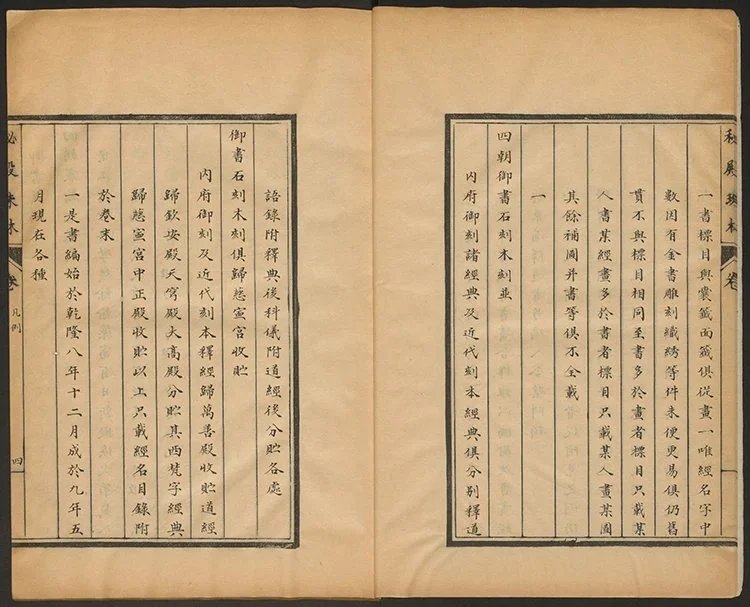 秘殿珠林 卷
一書標目與囊籤面籤俱從畫一唯經名字中
數因有金書雕刻織綉等件未便更易俱仍舊
貫不與標目相同至書多於畫者標目只載某
人書某經畫多於書者標目只載某人畫某圖
其餘補圖并書等俱不全載
一
四朝御書石刻木刻並
內府御刻諸經典及近代刻本經典俱分別釋道
語錄附釋典後科儀附道經後分貯各處
御書石刻木刻俱歸慈寧宮收貯
內府御刻及近代刻本釋經歸萬善殿收貯道經
歸欽安殿天穹殿大高殿分貯其西梵字經典
歸慈寧宮中正殿收貯以上只載經名目錄附
於卷末
一是書編始於乾隆八年十二月成於九年五
月現在各種
秘殿珠林 卷 凡例 四